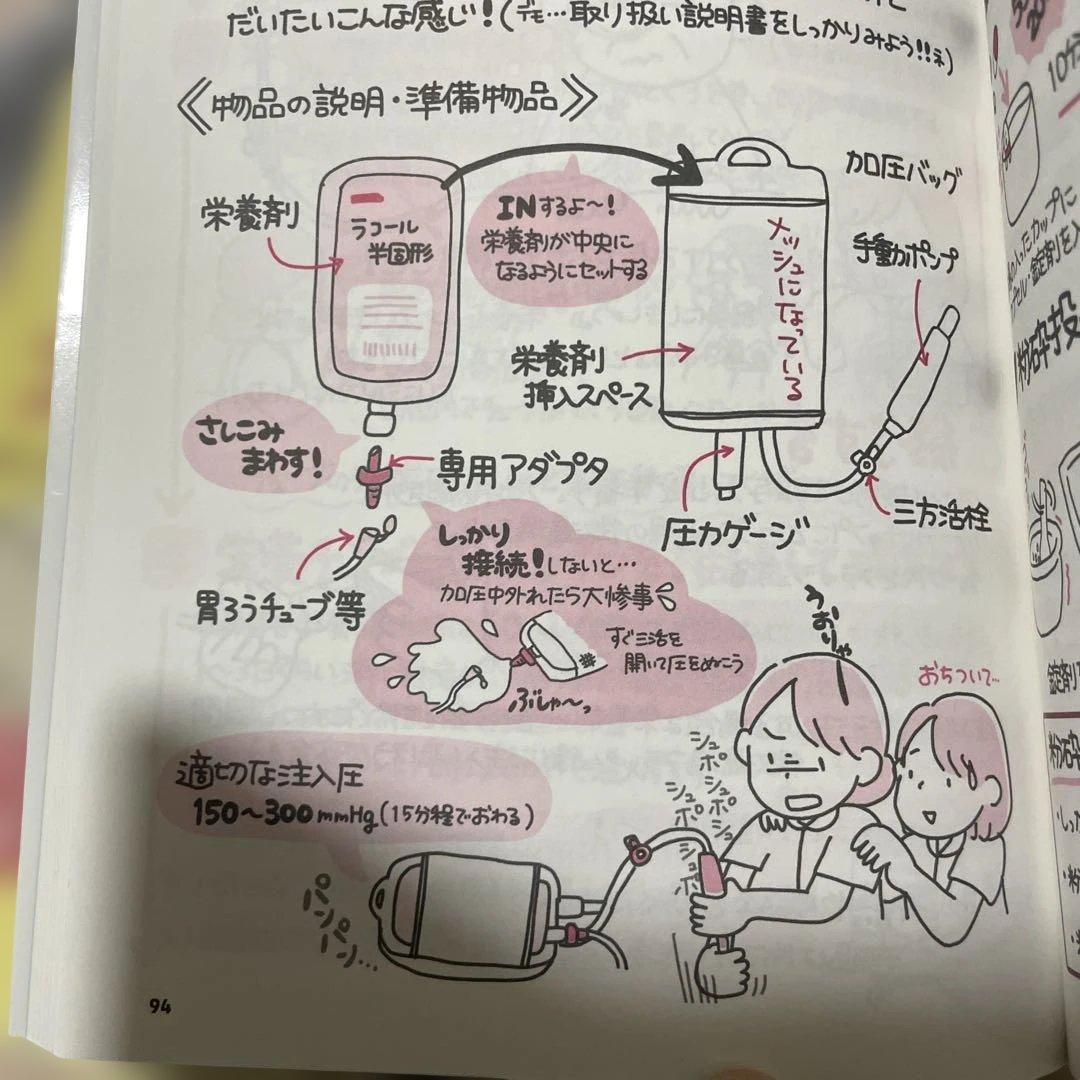 だいたいこんな感じ!(デモ…取り扱い説明書をしっかりみよう!!ネ)
≪物品の説明・準備物品≫
栄養剤
ラコール
半固形
INするよ〜!
栄養剤が中央に
なるようにセットする
加圧バッグ
メッシュになっている
手動ポンプ
栄養剤
挿入スペース
さしこみ
まわす!
専用アダプタ
圧力ゲージ
三方活栓
胃ろうチューブ等
しっかり
接続!しないと…
加圧中外れたら大惨事
すぐ三活を
開いて圧をぬこう
ぶしゃ〜っ
うおりゃ
おちついて…
適切な注入圧
150〜300mmHg(15分程でおわる)
シュポシュポ
シュポシュ
シュポ
パンパン…
94
10分
粉砕投
錠剤
粉砕